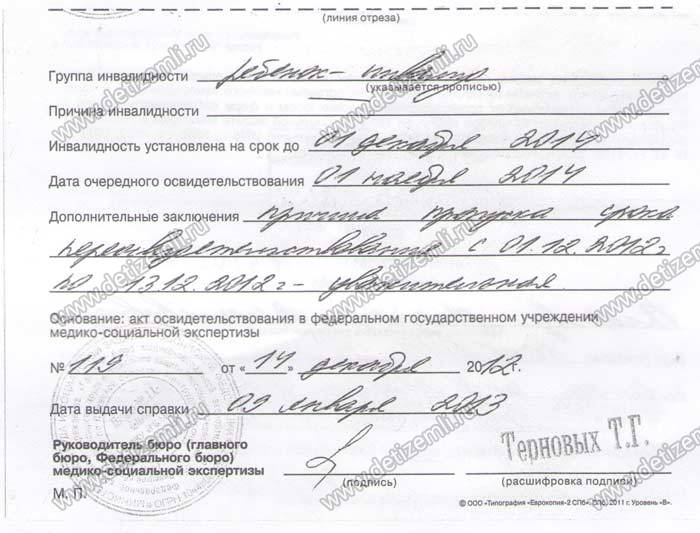 (линия отреза)
Группа инвалидности ребенок-инвалид
(указывается прописью)
Причина инвалидности
Инвалидность установлена на срок до 01 декабря 2014
Дата очередного освидетельствования 01 ноября 2014
Дополнительные заключения причина пропуска срока
переосвидетельствования с 01.12.2012г
по 13.12.2012г- уважительная
Основание: акт освидетельствования в федеральном государственном учреждении
медико-социальной экспертизы
№ 119 от «14» декабря 2012г.
Дата выдачи справки 09 января 2013
Руководитель бюро (главного
бюро, Федерального бюро)
медико-социальной экспертизы
Терновых Т.Г.
(подпись) (расшифровка подписи)
М. П.
© ООО «Типография «Еврокопия-2 СПб», СПб, 2011 г. Уровень «В».
www.detizemli.ru